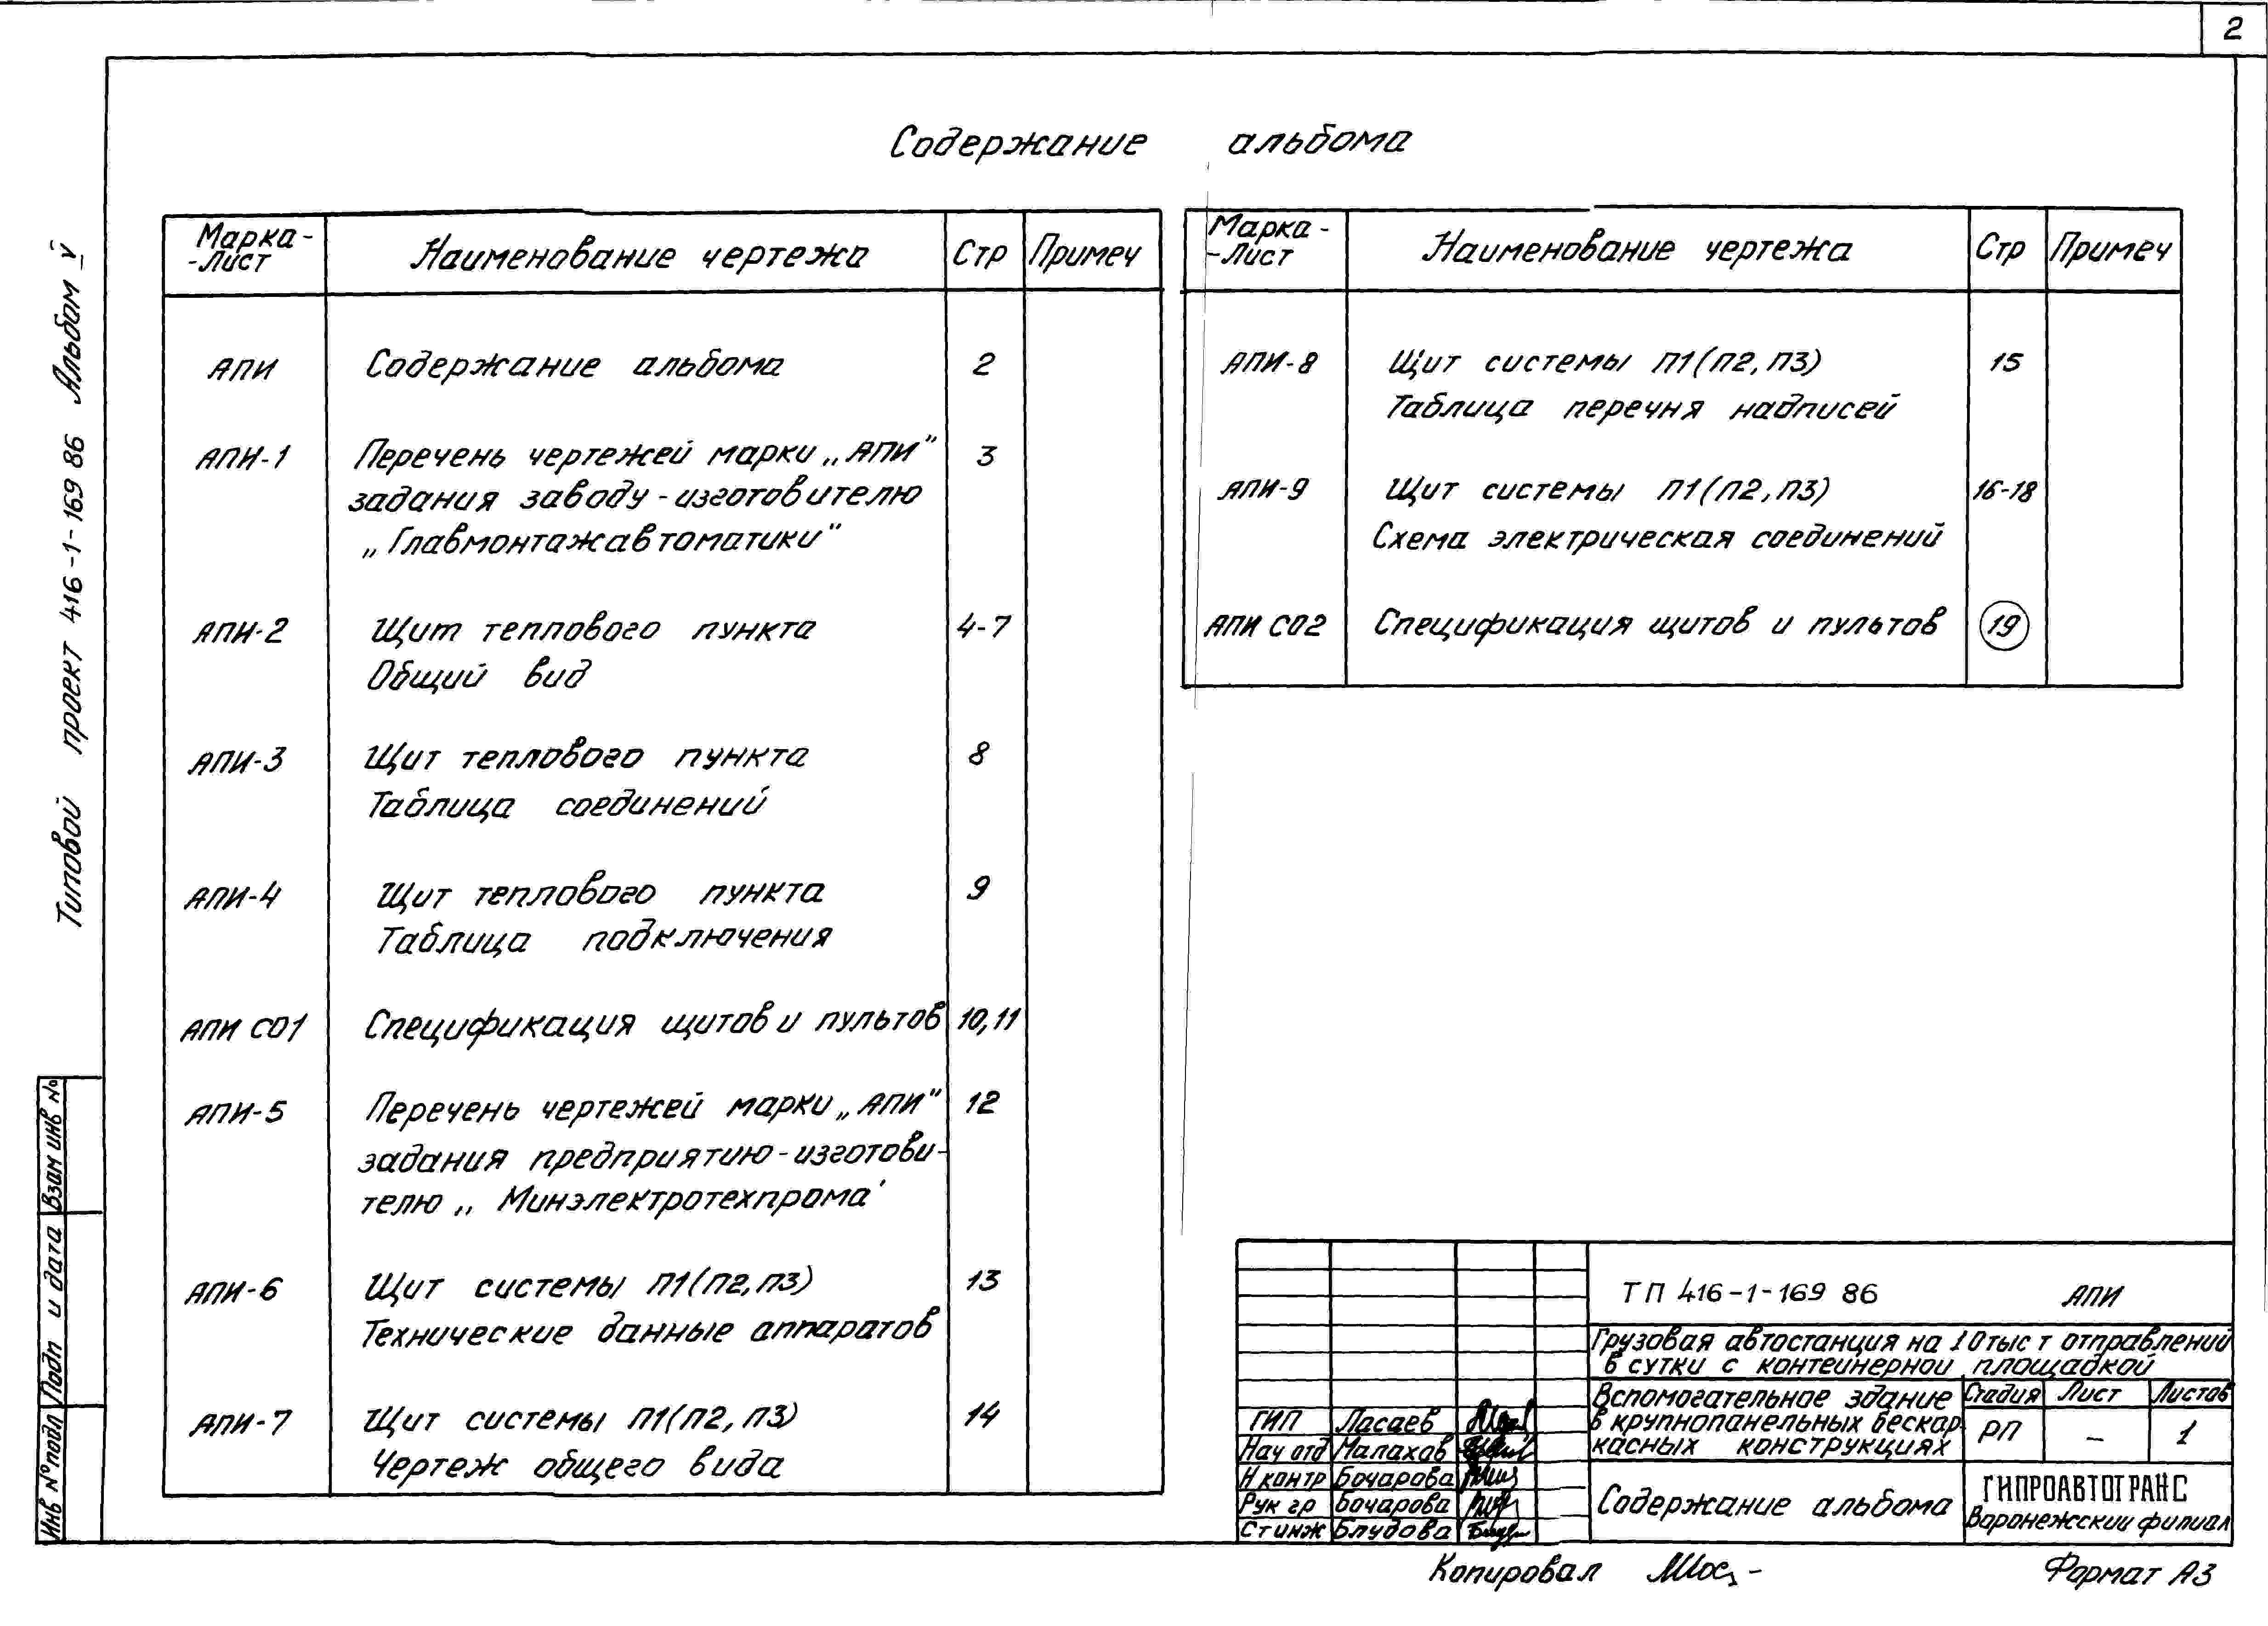 2
Содержание альбома
Марка-
-Лист
Наименование чертежа
Стр
Примеч
АПИ
Содержание альбома
2
АПИ-1
Перечень чертежей марки „АПИ"
3
задания заводу-изготовителю
„Главмонтажавтоматики"
АПИ-2
Щит теплового пункта
4-7
Общий вид
АПИ-3
Щит теплового пункта
8
Таблица соединений
АПИ-4
Щит теплового пункта
9
Таблица подключения
АПИ СО1
Спецификация щитов и пультов
10,11
АПИ-5
Перечень чертежей марки „АПИ"
12
задания предприятию-изготови-
телю „ Минэлектротехпрома'
АПИ-6
Щит системы П1(П2,П3)
13
Технические данные аппаратов
АПИ-7
Щит системы П1(П2, П3)
14
Чертеж общего вида
Марка-
-Лист
Наименование чертежа
Стр
Примеч
АПИ-8
Щит системы П1(П2,П3)
15
Таблица перечня надписей
АПИ-9
Щит системы П1(П2,П3)
16-18
Схема электрическая соединений
АПИ СО2
Спецификация щитов и пультов
19
Типовой проект 416-1-169 86 Альбом V
Взам инв №
Подп и дата
Инв № подл
ТП 416-1-169 86 АПИ
Грузовая автостанция на 10тыс т отправлений
в сутки с контейнерной площадкой
Вспомогательное здание
в крупнопанельных бескар
касных конструкциях
Стадия Лист Листов
РП – 1
ГИП Ласаев
Нач отд Малахов
Н контр Бочарова
Рук гр Бочарова
Ст инж Блудова
Содержание альбома
ГИПРОАВТОТРАНС
Воронежский филиал
Копировал
Формат А3